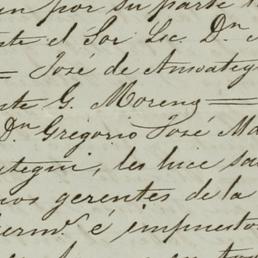 un por su parte
el Sor Lic. Dn
José de Anzategui
G. Moreno
Dn Gregorio José Ma
tegui, les hice sa
gerentes de la
herms. é impuestos